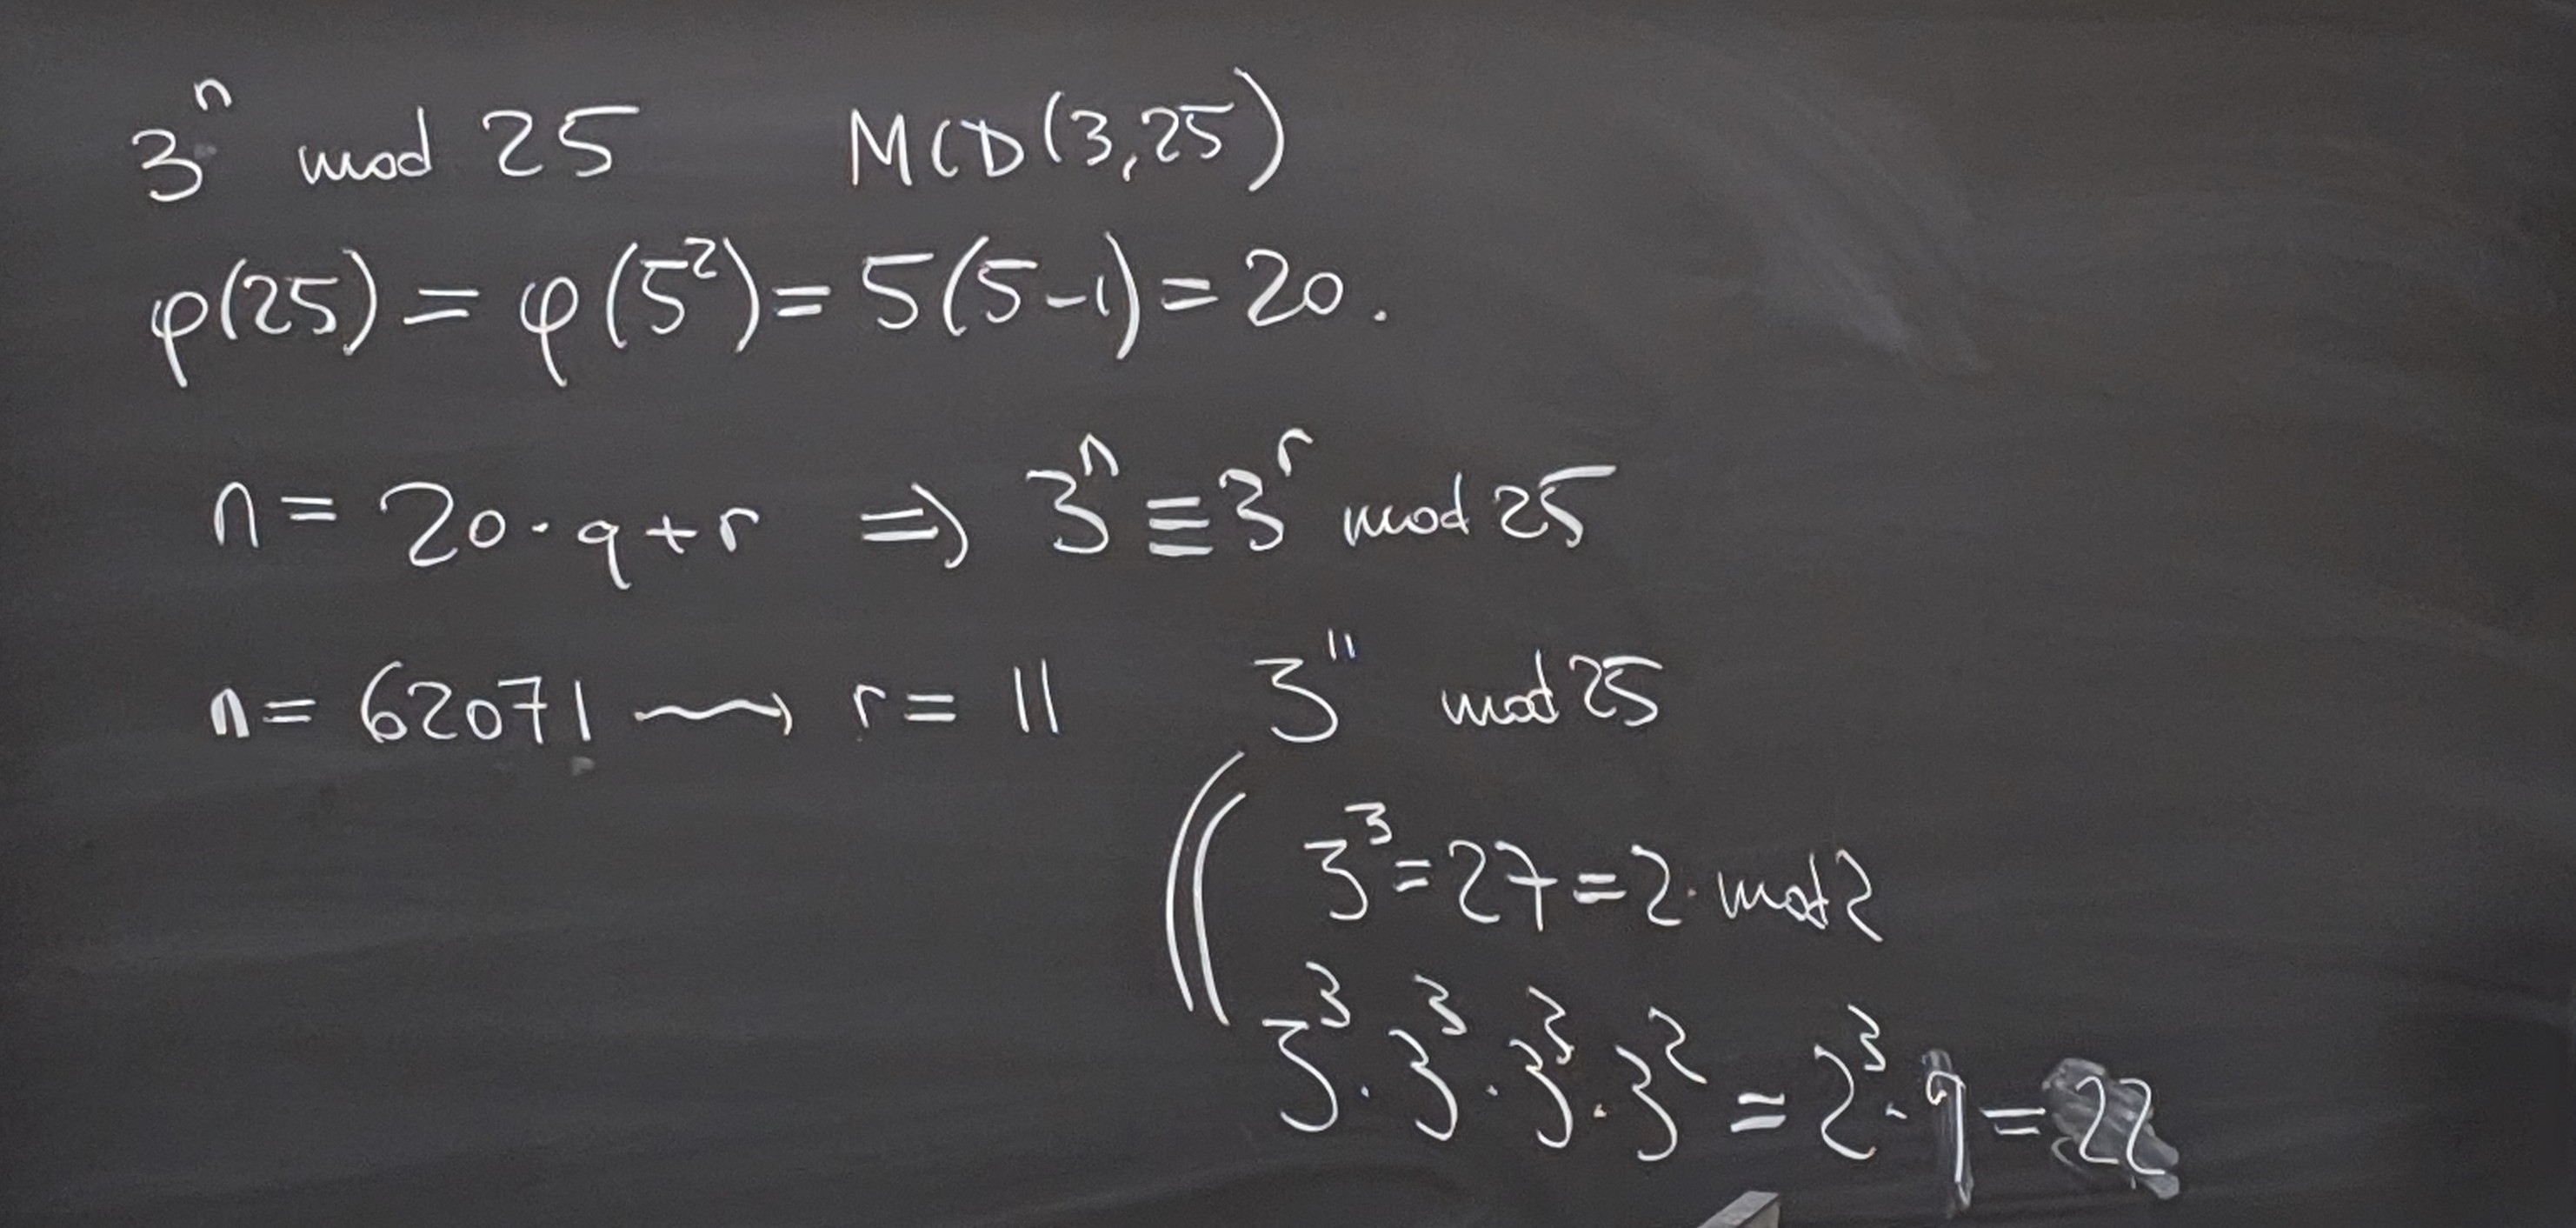 3ⁿ mod 25 MCD(3,25)
φ(25) = φ(5²) = 5(5-1) = 20.
n = 20·q+r ⇒ 3ⁿ ≡ 3ʳ mod 25
n = 62071 ⇝ r = 11 3¹¹ mod 25
3³=27=2· mod 2
3³·3³·3³·3² = 2³·9=22